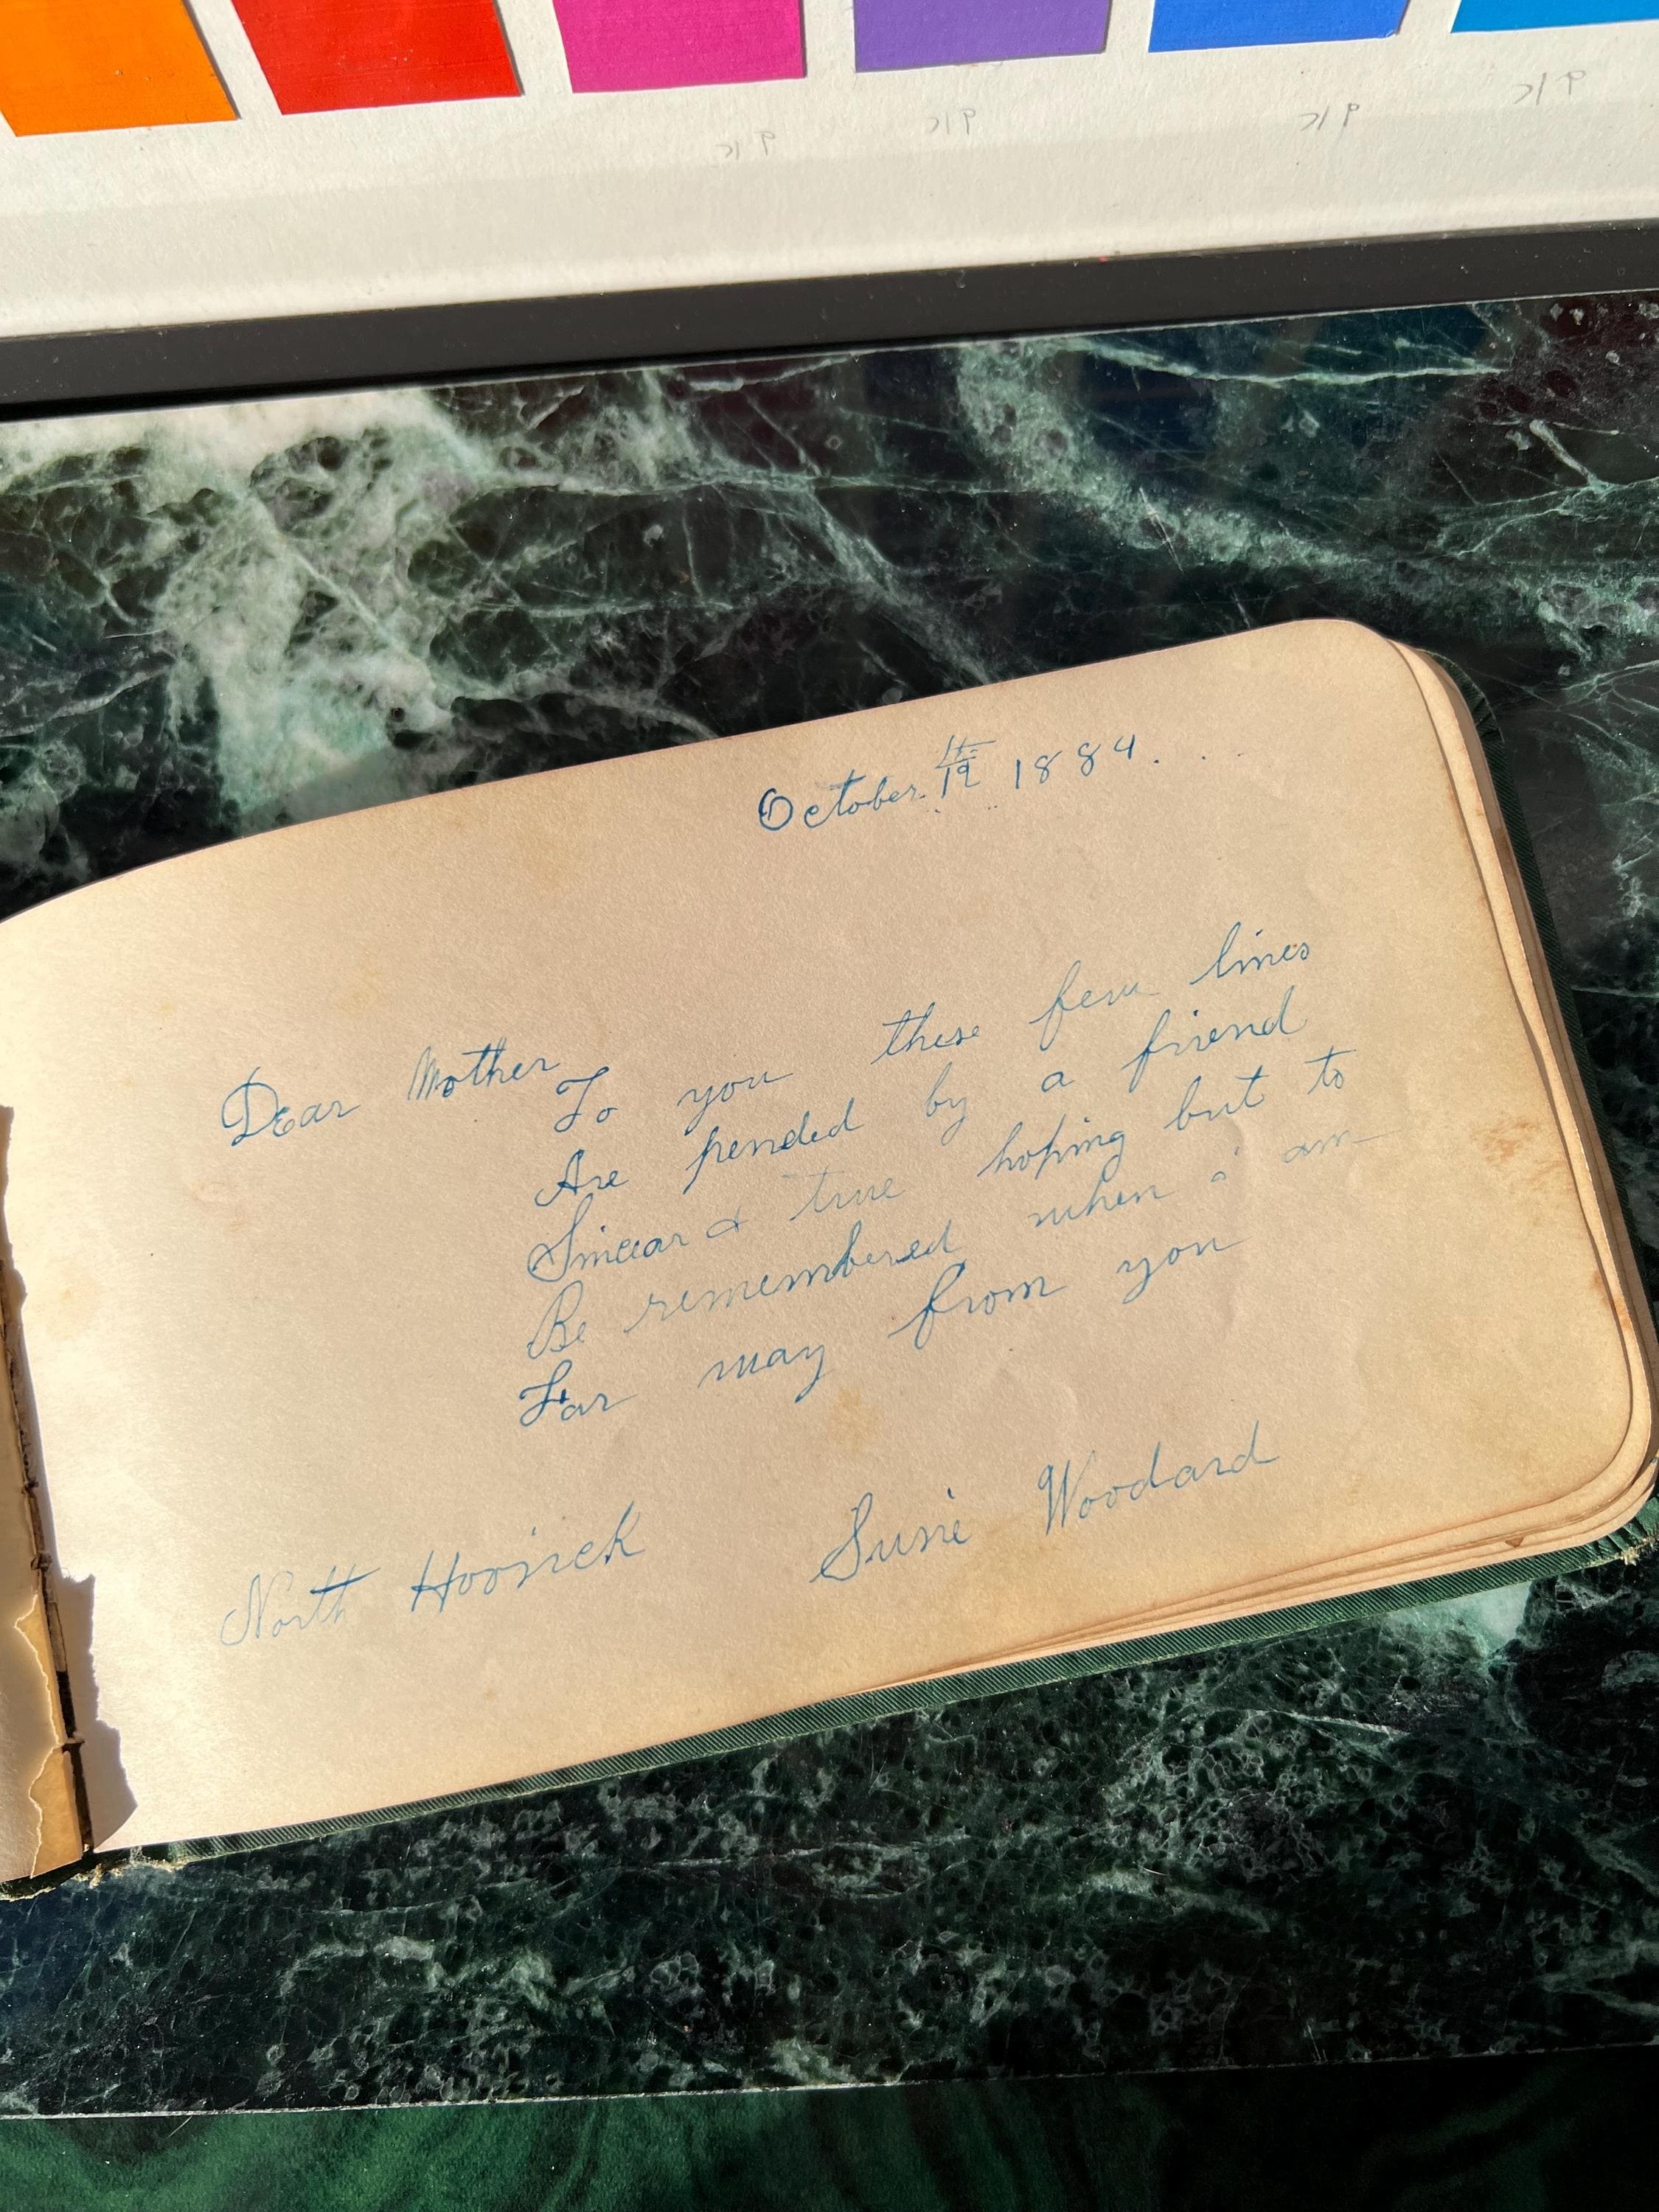 October 19th 1884.
Dear Mother
To you these few lines
Are pended by a friend
Sincear & true hoping but to
Be remembered when i am
Far may from you
North Hoosick Susie Woodard